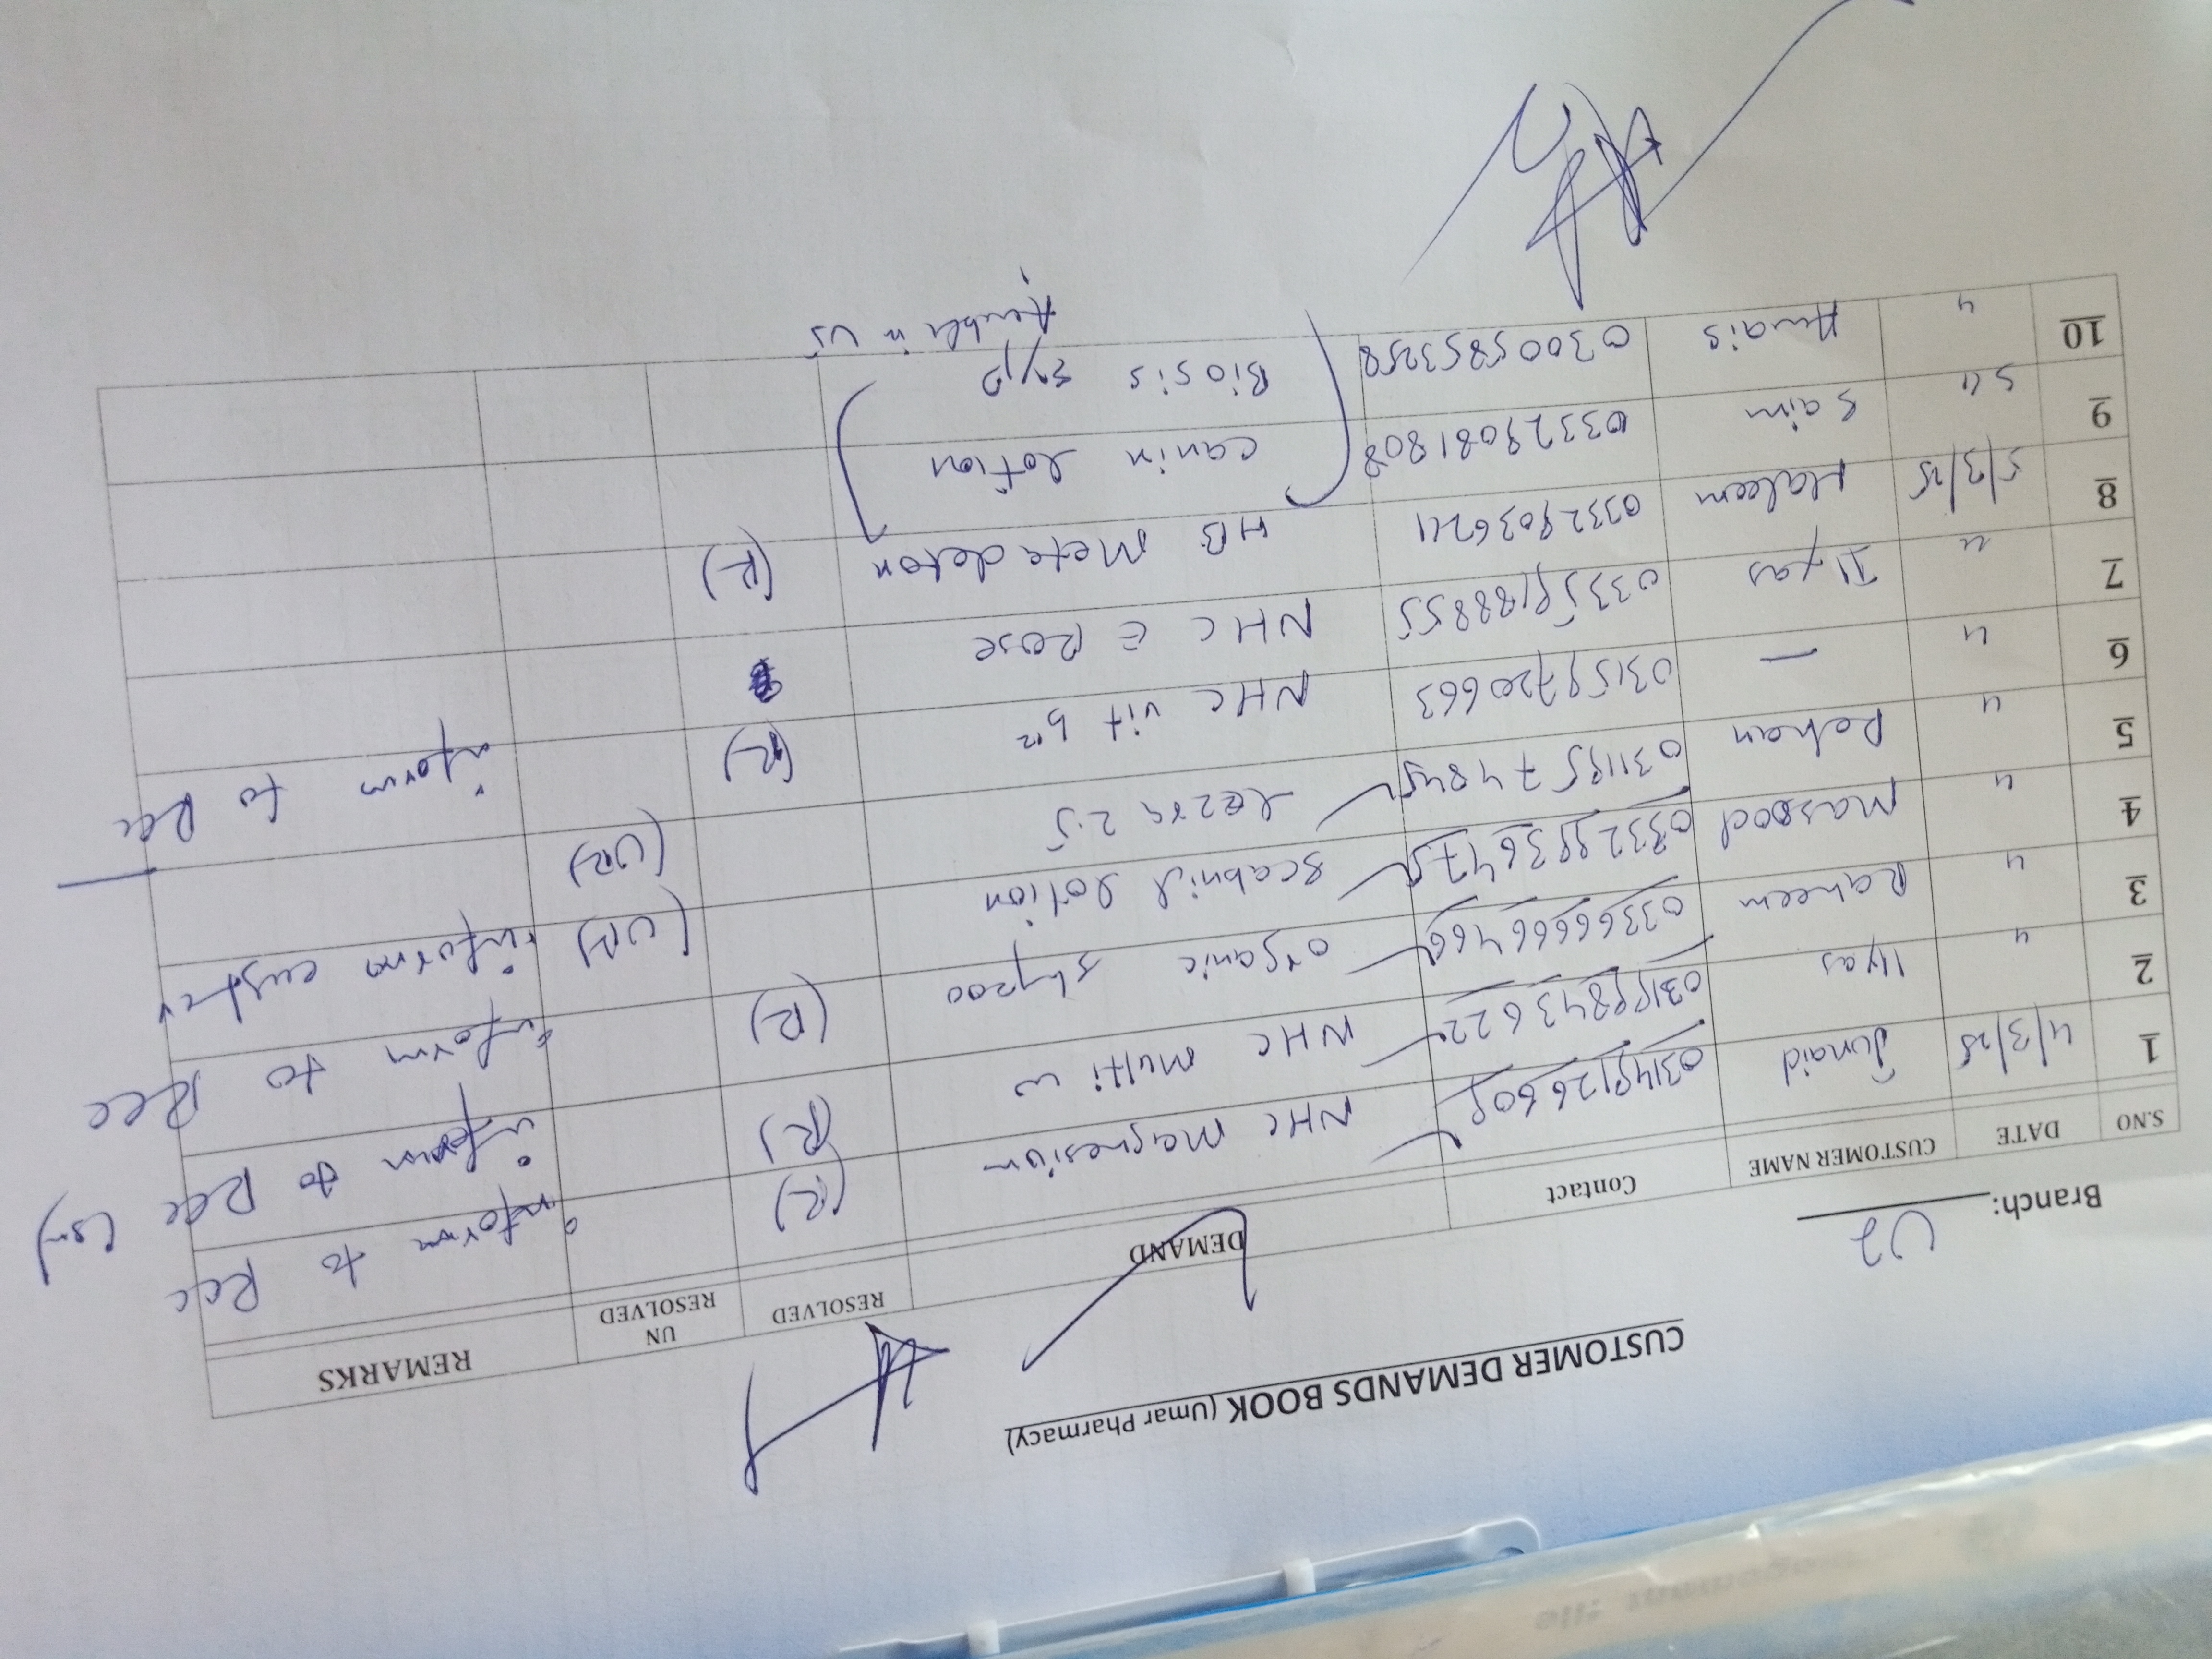 CUSTOMER DEMANDS BOOK (Umar Pharmacy)
Branch: U2
S.NO DATE CUSTOMER NAME Contact DEMAND RESOLVED UN RESOLVED REMARKS
1 4/3/25 Junaid NHC Magnesium (R) inform to Rec
2 4 Ilyas NHC Multi w (R) inform to Rec
3 4 Raheem 03366666466 organic (R) inform to Rec
4 4 Masood scabnil lotion (UR) inform
5 4 Rehan 2.5 (UR)
6 4 — 03159720663 NHC vit b12 (R) inform to Rec
7 4 Ilyas 03359188855 NHC E Rose
8 5/3/25 Haleem 03329036211 HB Meta deton (R)
9 Saim 03329081808 canin lotion
10 4 03005853258 Biosis syp
in U5